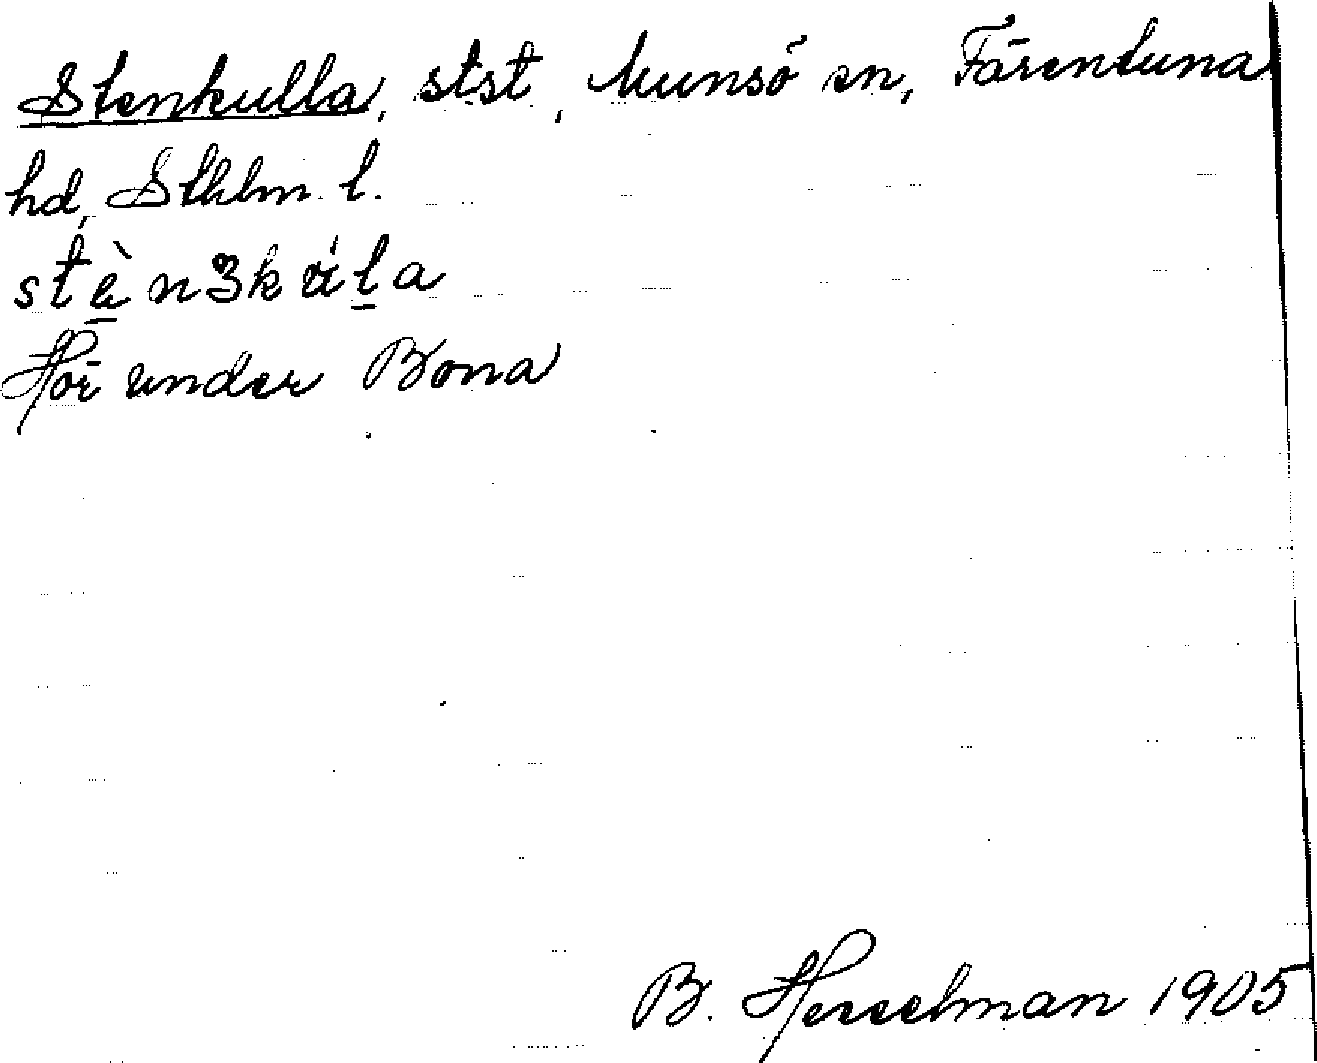 Stenkulla, stst, Munsö sn, Färentuna
hd, Sthlm l.
stèn3kúla
Hör under Bona
B. Hesselman 1905